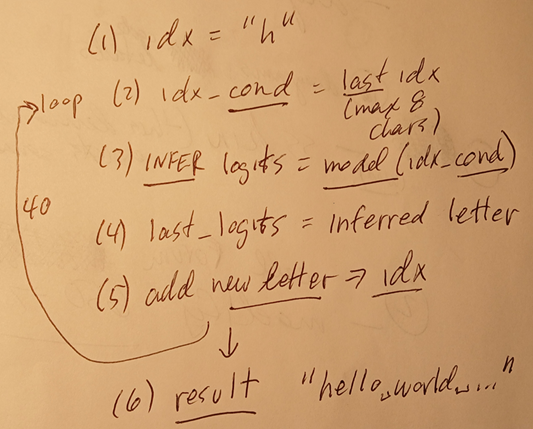 (1) idx = "h"
loop (2) idx_cond = last idx
(max 8
chars)
(3) INFER logits = model (idx_cond)
40
(4) last_logits = inferred letter
(5) add new letter → idx
(6) result "hello␣world␣..."